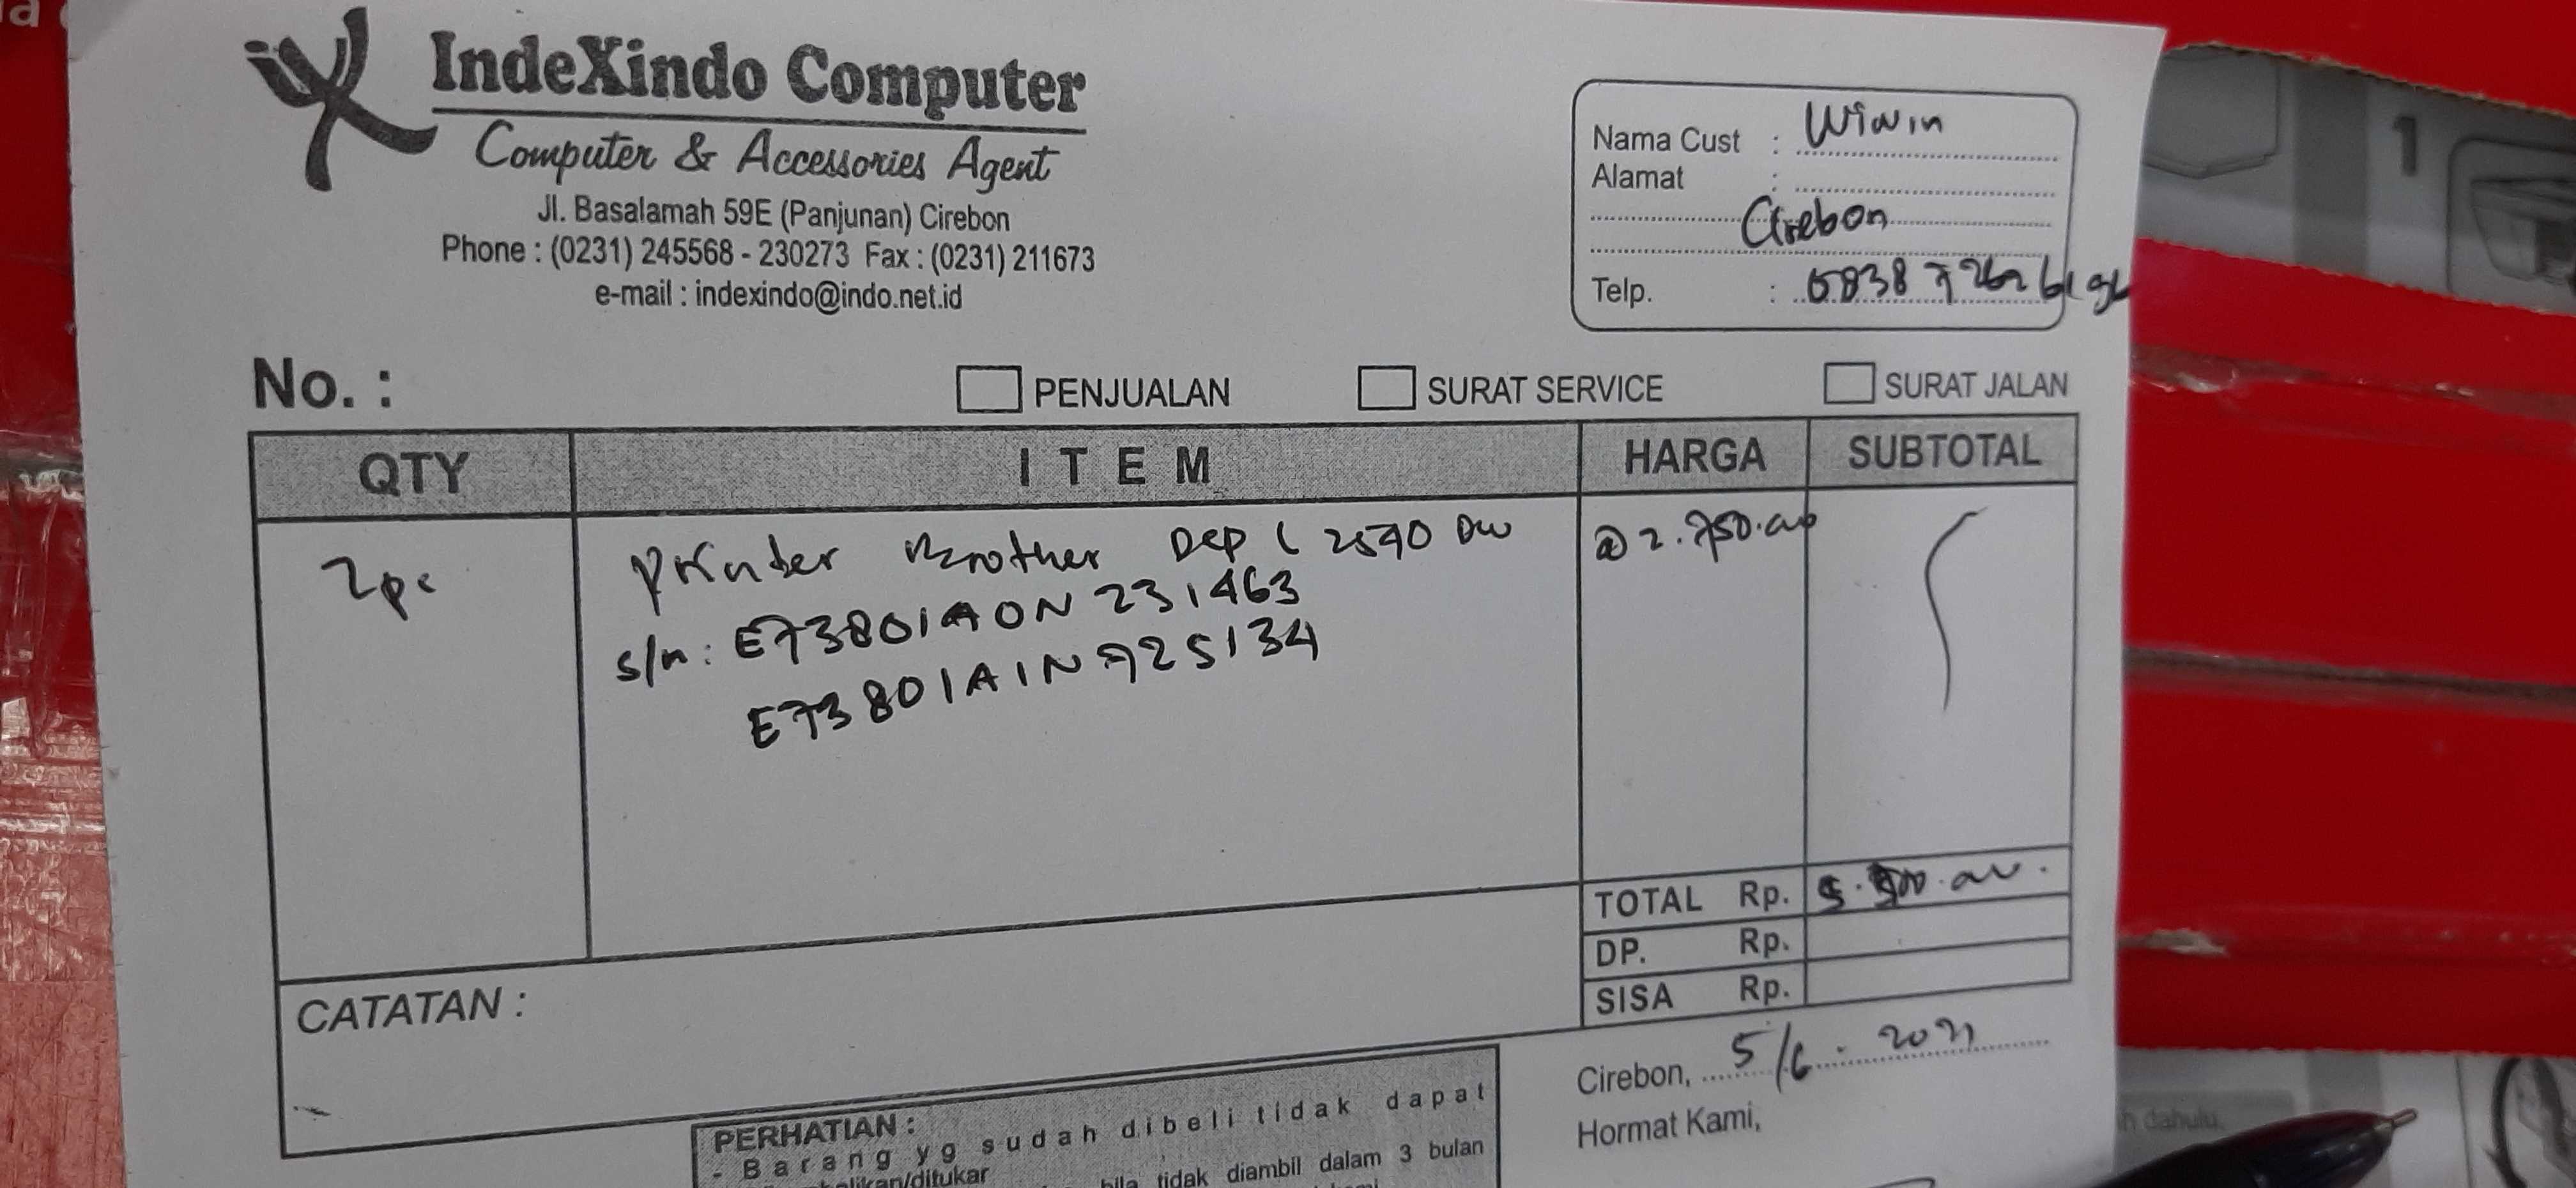 IndeXindo Computer
Computer & Accessories Agent
Jl. Basalamah 59E (Panjunan) Cirebon
Phone : (0231) 245568 - 230273 Fax : (0231) 211673
e-mail : indexindo@indo.net.id
Nama Cust : Winin
Alamat :
Cirebon
Telp. :
No. :
PENJUALAN SURAT SERVICE SURAT JALAN
QTY ITEM HARGA SUBTOTAL
2 pc Printer Brother DCP L 2540 DW @ 2.750.000
s/n: E73801A0N231463
E73801A1N725134
TOTAL Rp. 5.500.000.
DP. Rp.
SISA Rp.
CATATAN :
Cirebon, 5/6 - 2021
Hormat Kami,
PERHATIAN :
- Barang yg sudah dibeli tidak dapat
bila tidak diambil dalam 3 bulan
1